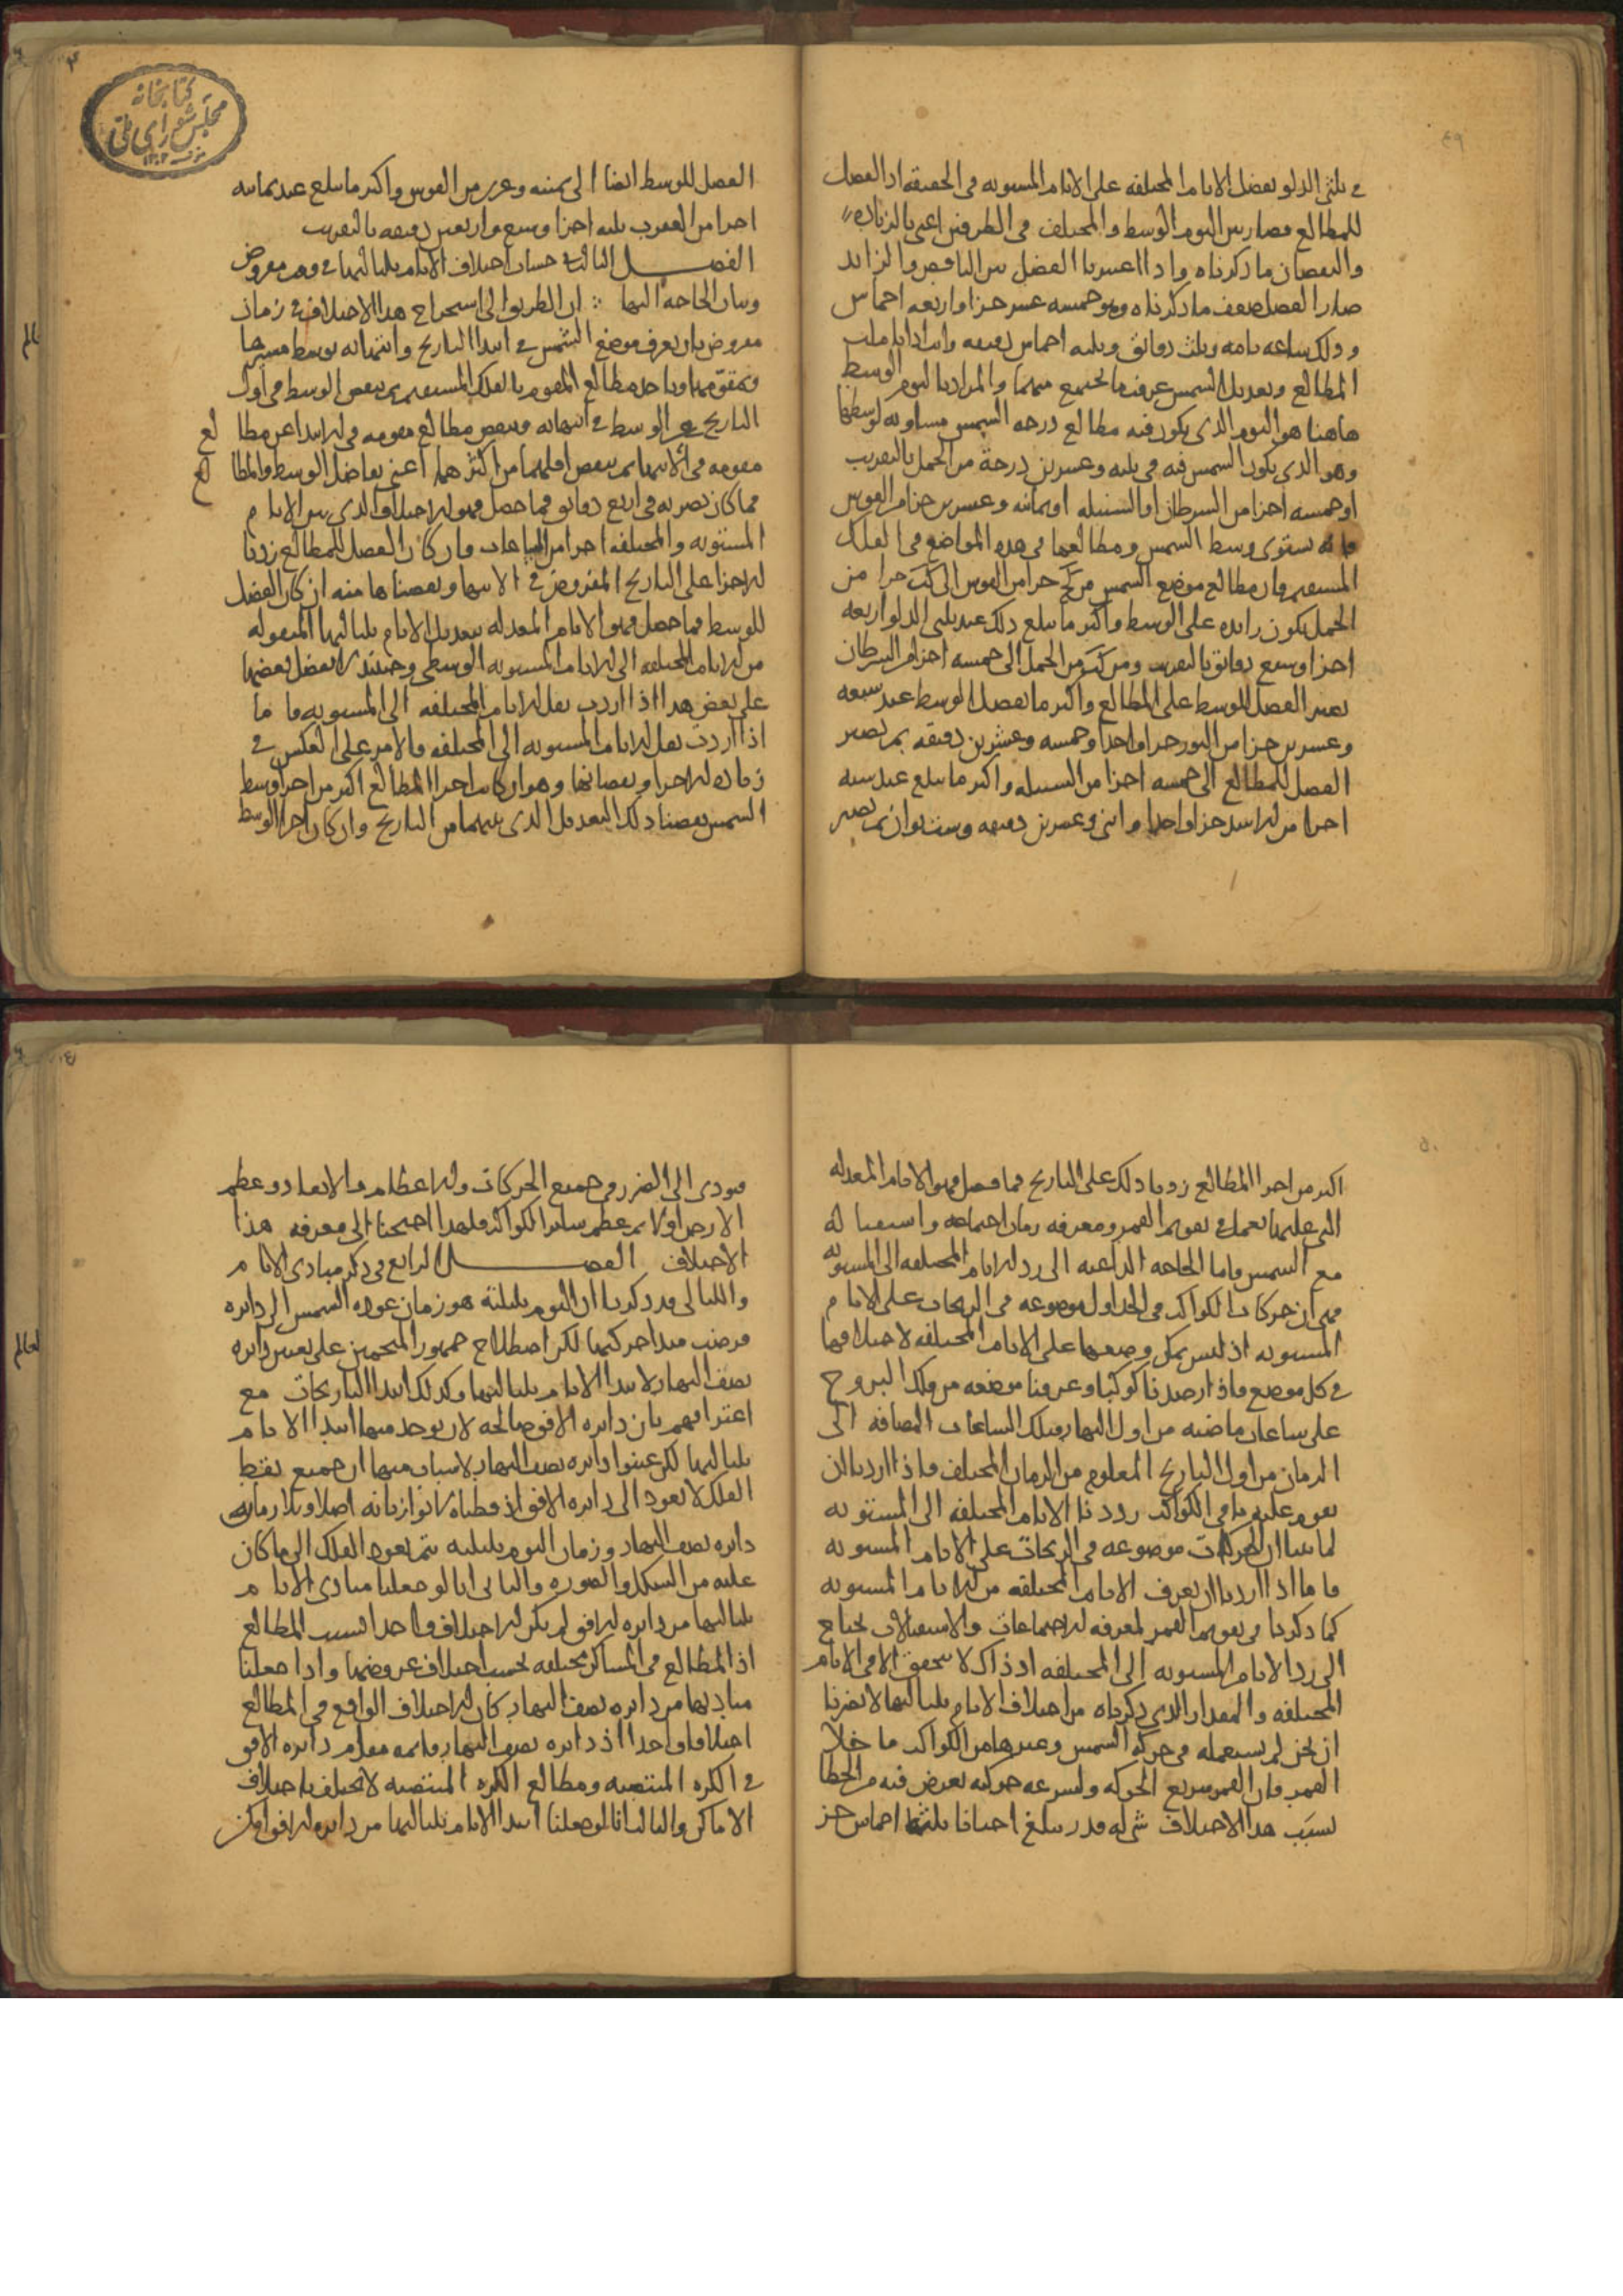 في ثلثي الدلو بفضل الايام المختلفه على الايام المستويه في الحقيقه اذ الفضل
للمطالع فصار بين اليوم الوسط والمختلف في الطرفين اعني بالزياده
والنقصان ما ذكرناه واذا اعتبرنا الفضل بين الناقص والزايد
صار الفضل ضعف ما ذكرناه وهو خمسه عشر جزا واربعه اخماس
وذلك ساعه تامه وثلث دقائق وثلثه اخماس دقيقه وانت اذا تاملت
المطالع وتعديل الشمس عرفت ما يجتمع منهما والمراد باليوم الوسط
هاهنا هو اليوم الذي يكون فيه مطالع درجه الشمس مساويه لوسطها
وهو الذي يكون الشمس فيه في ثلثه وعشرين درجة من الحمل بالتقريب
او خمسه اجزا من السرطان او السنبله او ثمانيه وعشرين جزا من القوس
فانه يستوي وسط الشمس ومطالعها في هذه المواضع في الفلك
المستقيم فان مطالع موضع الشمس من كح جزا من القوس الى كج جزا من
الحمل يكون زايده على الوسط واكثر ما يبلغ ذلك عند ثلثي الدلو اربعه
اجزا وسبع دقائق بالتقريب ومن كج من الحمل الى خمسه اجزا من السرطان
يصير الفضل للوسط على المطالع واكثر ما يفضل الوسط عند سبعه
وعشرين جزا من الثور جزا واحدا وخمسه وعشرين دقيقه ثم يصير
الفضل للمطالع الى خمسه اجزا من السنبله واكثر ما يبلغ عند سته
اجزا من الاسد جزا واحدا واثني وعشرين دقيقه وست ثوان ثم يصير
كتابخانه
مجلس شورای ملی
الفصل للوسط ايضا الى ثمنيه وعشرين من القوس واكثر ما يبلغ عند ثمانيه
اجزا من العقرب ثلثه اجزا وسبع واربعين دقيقه بالتقريب
الفصل الثالث في حساب اختلاف الايام بلياليها في وقت مفروض
وبيان الحاجه اليها ان الطريق الى استخراج هذا الاختلاف في زمان
مفروض بان يعرف موضع الشمس في ابتدا التاريخ وانتهائه بوسط مسيرها
وتقويمها وناخذ مطالع المقوم بالفلك المستقيم ثم ينقص الوسط في اول
التاريخ عن الوسط في انتهائه وينقص مطالع مقومه في الابتدا عن مطالع
مقومه في الانتها ثم ينقص اقلهما من اكثرهما اعني تفاضل الوسط والمطالع
فما كان نضربه في اربع دقائق فما حصل فهو الاختلاف الذي بين الايام
المستويه والمختلفه اجزا من الساعات فان كان الفضل للمطالع زدنا
الاجزا على التاريخ المفروض في الانتها ونقصناها منه ان كان الفضل
للوسط فما حصل فهو الايام المعدله بتعديل الايام بلياليها المنقوله
من الايام المختلفه الى الايام المستويه الوسطى وحينئذ لا يفضل بعضها
على بعض هذا اذا اردت نقل الايام المختلفه الى المستويه فاما
اذا اردت نقل الايام المستويه الى المختلفه فالامر على العكس في
زياده الاجزا ونقصانها وهو ان كانت اجزا المطالع اكثر من اجزا وسط
الشمس نقصنا ذلك التعديل الذي بينهما من التاريخ وان كان اجزا الوسط
اكثر من اجزا المطالع زدنا ذلك على التاريخ فما حصل فهو الايام المعدله
التي عليها نعمل في تقويم القمر ومعرفه زمان اجتماعه واستقباله
مع الشمس واما الحاجه الداعيه الى رد الايام المختلفه الى المستويه
فهي ان حركات الكواكب في الجداول موضوعه في الزيجات على الايام
المستويه اذ ليس يمكن وضعها على الايام المختلفه لاختلافها
في كل موضع فاذا رصدنا كوكبا وعرفنا موضعه من فلك البروج
على ساعات ماضيه من اول النهار فتلك الساعات المضافه الى
الزمان من اول التاريخ المعلوم من الزمان المختلف فاذا اردنا ان
نقوم عليه باقي الكواكب رددنا الايام المختلفه الى المستويه
لما بينا ان الحركات موضوعه في الزيجات على الايام المستويه
فاما اذا اردنا ان نعرف الايام المختلفه من الايام المستويه
كما ذكرنا في تقويم القمر لمعرفه الاجتماعات والاستقبالات نحتاج
الى رد الايام المستويه الى المختلفه اذ ذاك لا يتحقق الا في الايام
المختلفه والمقدار الذي ذكرناه من اختلاف الايام بلياليها لا يضرنا
ان نحن لم نستعمله في حركه الشمس وغيرها من الكواكب ما خلا
القمر فان القمر سريع الحركه ولسرعه حركته يعرض فيه من الخطا
بسبب هذا الاختلاف شي له قدر يبلغ احيانا ثلثه اخماس جز
فيودي الى الضرر في جميع الحركات والاعظام والابعاد وعظم
الارض اولا ثم عظم ساير الكواكب فلهذا احتجنا الى معرفه هذا
الاختلاف الفصل الرابع في ذكر مبادي الايام
والليالي قد ذكرنا ان اليوم بليلته هو زمان عوده الشمس الى دايره
فرضت مبدا حركتها لكن اصطلاح جمهور المنجمين على تعيين دايره
نصف النهار لابتدا الايام بلياليها وكذلك ابتدا التاريخات مع
اعترافهم بان دايره الافق صالحه لان يوخذ منها ابتدا الايام
بلياليها لكن عينوا دايره نصف النهار لاسباب منها ان جميع نقط
الفلك لا يعود الى دايره الافق اذ قطباه لا يوازيانه اصلا ويلازمان
دايره نصف النهار وزمان اليوم بليلته يتم بعود الفلك الى ما كان
عليه من الشكل والصوره والثاني انا لو جعلنا مبادي الايام
بلياليها من دايره الافق لم يكن الاختلاف واحدا لسبب المطالع
اذ المطالع في المساكن مختلفه بحسب اختلاف عروضها واذا جعلنا
مباديها من دايره نصف النهار كان الاختلاف الواقع في المطالع
اختلافا واحدا اذ دايره نصف النهار قايمه مقام دايره الافق
في الكره المنتصبه ومطالع الكره المنتصبه لا تختلف باختلاف
الاماكن والثالث انا لو جعلنا ابتدا الايام بلياليها من دايره الافق امكن